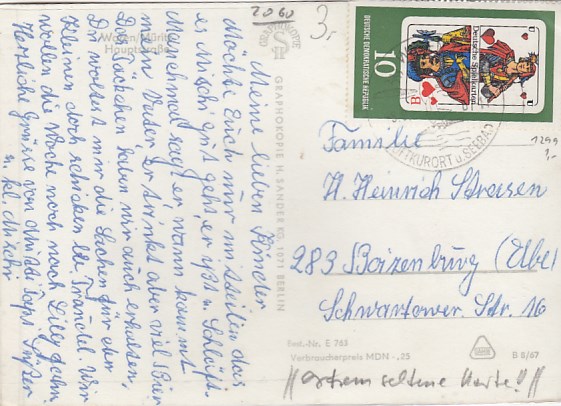 2060
3,-
Waren/Müritz
Hauptstraße
Meine lieben Kinder
Möchte Euch nur mitteilen das
es Muschi gut geht, er ißt u. schläft.
Manchmal sagt er wann kommt
mein Vader er trinkt aber viel Bier
Die Päckchen haben wir auch erhalten,
Du wolltest mir die Sachen für den
Kleinen doch schicken lb. Traudel. Wir
wollen die Woche noch nach
Herzliche Grüße von
GRAPHOKOPIE
GRAPHOKOPIE H. SANDER KG, 1071 BERLIN
DEUTSCHE DEMOKRATISCHE REPUBLIK
10
Deutsche Spielkarten
B
U
U
LUFTKURORT u. SEEBAD
1299
3,-
Familie
H. Heinrich
283 Boizenburg (Elbe)
Schwartower. Str. 16
Best.-Nr. E 763
Verbraucherpreis MDN -,25
B 8/67
// extrem seltene Karte! //